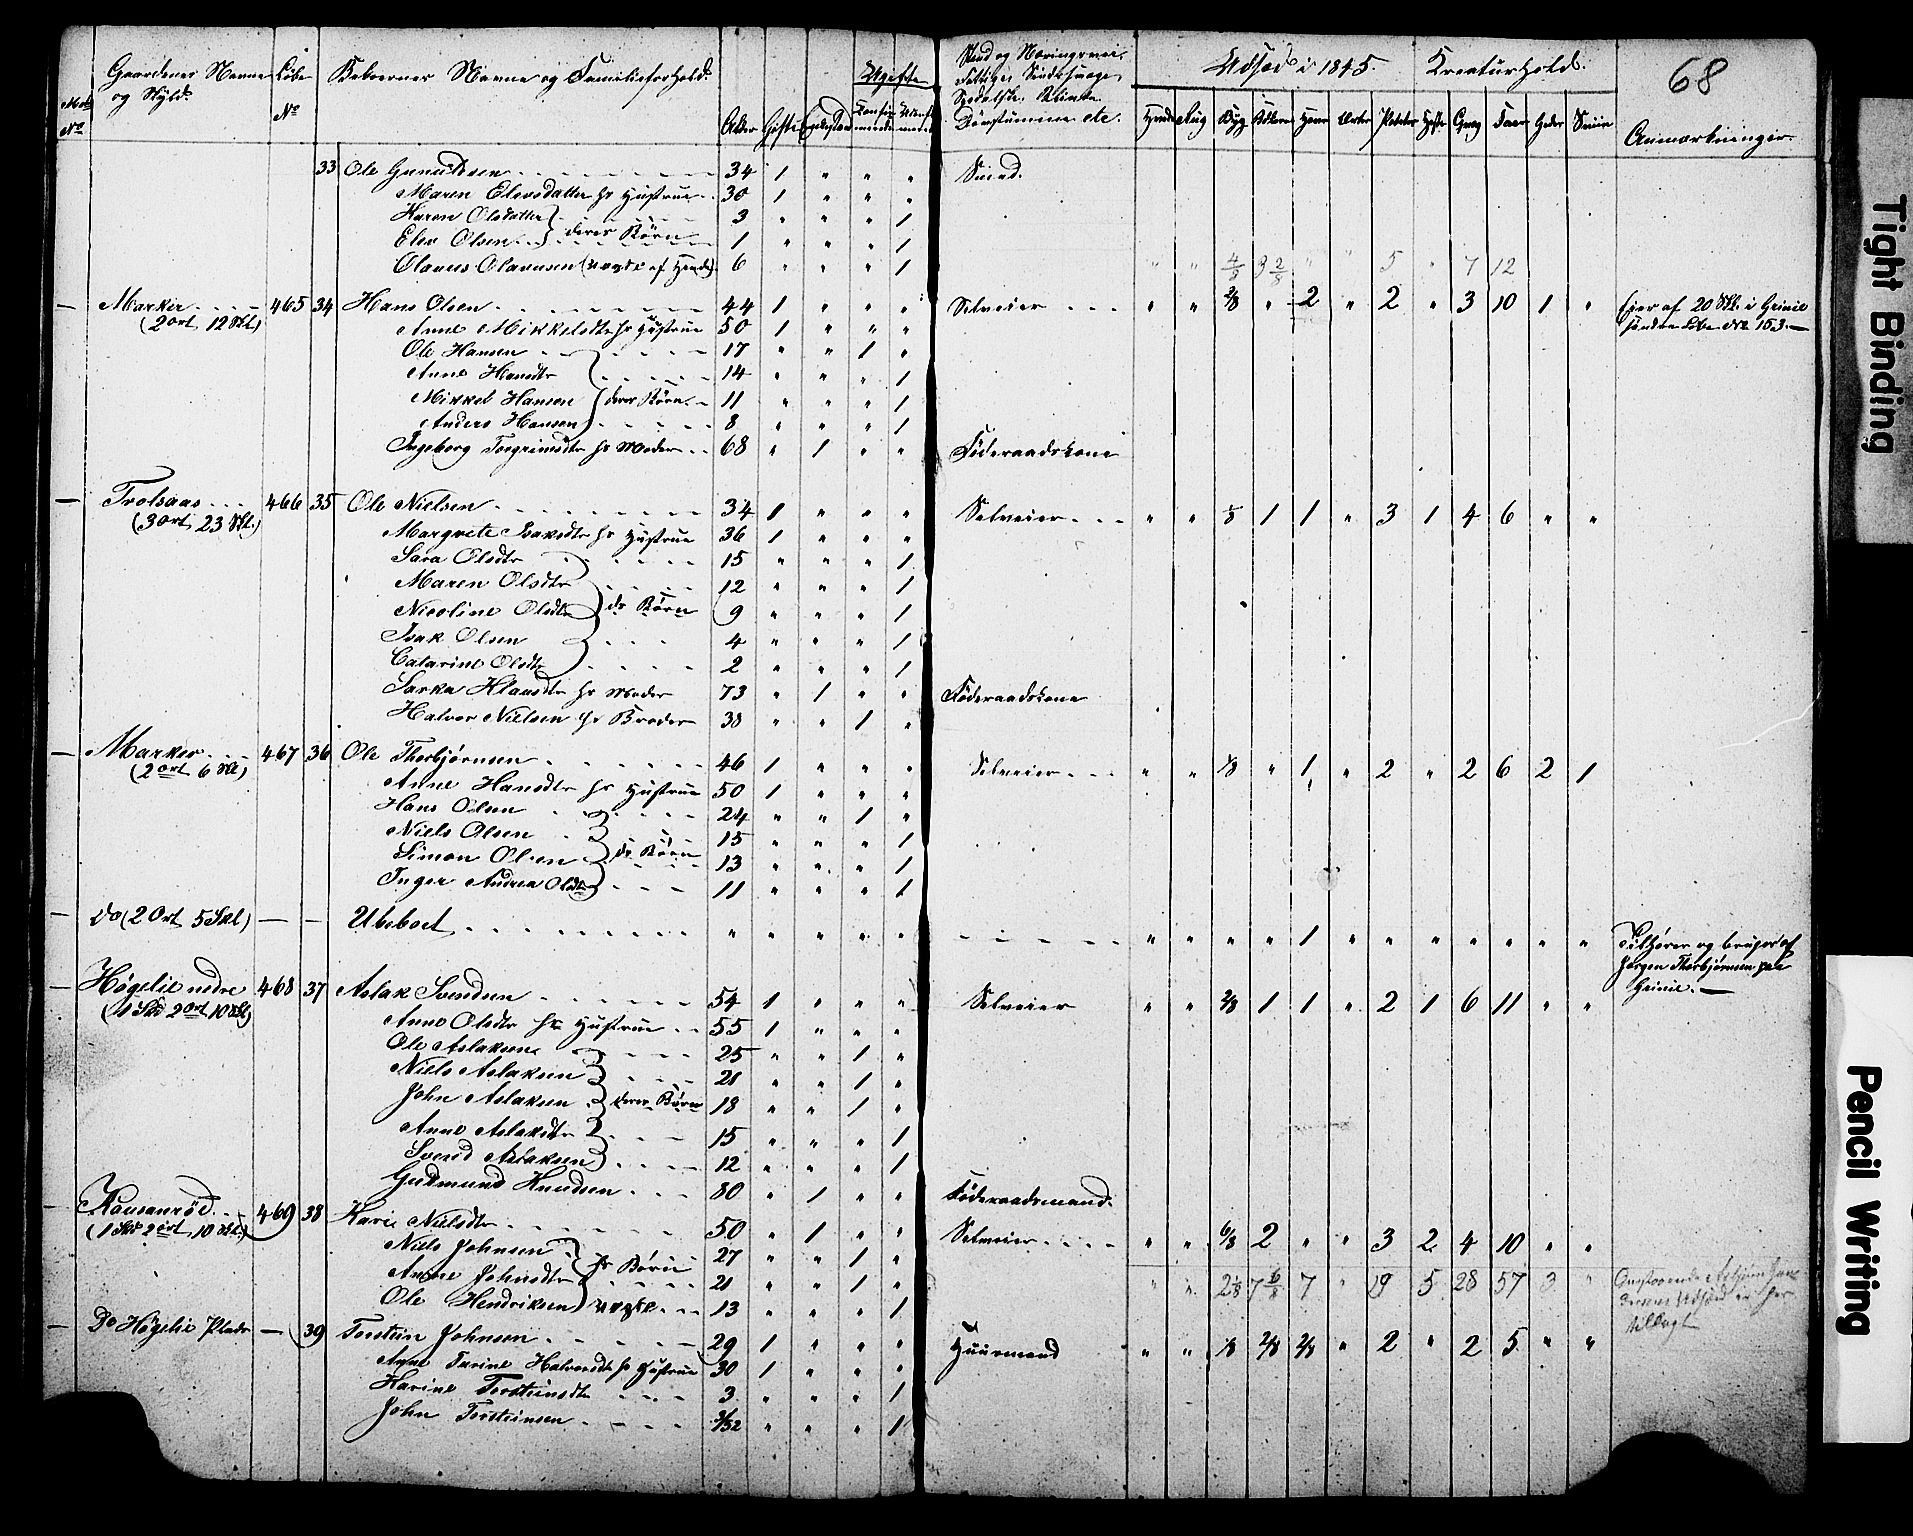 Gaardenes Navne og Skyld. Løbe No Beboernes Navne og Familieforhold. Alder Gifte Ugifte
Stand og Næringsvei Udsæd i 1845. Kreaturhold. 68
Byg Havre Erter Poteter Heste Faar Geder Sviin Anmærkninger.
33 Ole Gunuldsen 34 1 " " " Smed.
Maren Elevsdatter hs Hustrue 30 1 " " "
Karen Olsdatter 3 " " " 1
Elev Olsen } deres Børn 1 " " " 1
Olaves Olavesen 6 " " " 1 " " 4/8 3 2/8 " " 5 " 7 12
— Marker 465 34 Hans Olsen 44 1 " " " Selveier " " 2/8 " 2 " 2 " 3 10 1 " Eier af 20 Skl. i Grinie
(2 ort 12 Skl) Anne Mikkelsdtr hs Hustrue 50 1 " " " søndre Løbe No 153 —
Ole Hansen 17 " " 1 "
Anne Hansdtr 14 " " " 1
Mikkel Hansen } deres Børn 11 " " " 1
Anders Hansen 8 " " " 1
Ingeborg Torgrimsdtr hs Moder 68 " 1 " " Føderaadskone
— Trolsaas 466 35 Ole Nielsen 34 1 " " " Selveier " " 1/8 1 1 " 3 1 4 6 " "
(3 ort 23 Skl.) Margrete Isaksdtr hs Hustrue 36 1 " " "
Sara Olsdtr 15 " " " 1
Maren Olsdtr 12 " " " 1
Nicoline Olsdtr } ds Børn 9 " " " 1
Isak Olsen 4 " " " 1
Catarine Olsdtr 2 " " " 1
hs Moder 73 " 1 " " Føderaadskone
Halvor Nielsen hs Broder 38 " " 1 "
— Marker 467 36 Ole Thorbjørnsen 46 1 " " " Selveier " " 1/8 " 1 " 2 " 2 6 2 1
(2 ort 6 Skl) Anne Hansdtr hs Hustrue 50 1 " " "
Hans Olsen 24 " " 1 "
Niels Olsen 15 " " " 1
Simon Olsen } ds Børn 13 " " " 1
Inger Andrea Olsdtr 11 " " " 1
— Do (2 Ort 5 Skl) — — Ubeboet " " " " " " " " " 1 " " " " " " " Tilhører og bruges af
Jørgen Thorbjørnsen paa
Grinie. —
— Høgelie nedre 468 37 Aslak Svendsen 54 1 " " " Selveier " " 2/8 1 1 " 2 1 6 11 " "
(1 Skd 2 ort 10 Skl) Anne Olsdtr hs Hustrue 55 1 " " "
Ole Aslaksen 25 " " 1 "
Niels Aslaksen 21 " " 1 "
John Aslaksen } deres Børn 18 " " 1 "
Anne Aslaksdtr 15 " " " 1
Svend Aslaksen 12 " " " 1
Gudmund Knudsen 80 " 1 " " Føderaadsmand.
— 469 38 Karie Nielsdtr 50 " 1 " " Selveier " " 6/8 2 " " 3 2 4 10 " "
(1 Skd 2 ort, 10 Skl.) Niels Johnsen 27 " " 1 "
Anne Johnsdtr } hs Børn 21 " " 1 " " " 2 1/8 7 6/8 7 " 19 5 28 57 3 "
Ole Hendriksen 13 " " " 1
— Do Høgelie Plads — 39 Torstein Johnsen 29 1 " " " Huusmand " " 1/8 2/8 2/8 " 2 " 2 5 " "
Anne Turine Halvorsdtr hs Hustrue 30 1 " " "
Karine Torsteinsdtr 3 " " " 1
John Torsteinsen " " " 1
Tight Binding
Pencil Writing